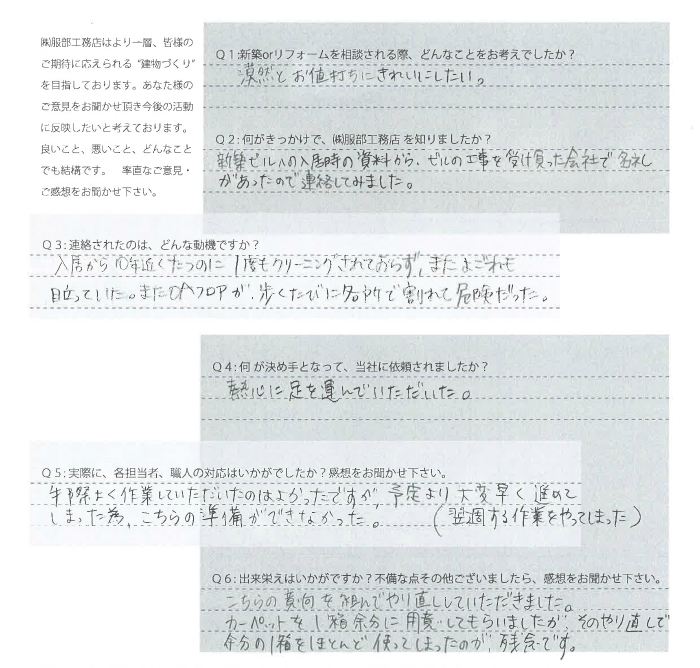 ㈱服部工務店はより一層、皆様の
ご期待に応えられる "建物づくり"
を目指しております。あなた様の
ご意見をお聞かせ頂き今後の活動
に反映したいと考えております。
良いこと、悪いこと、どんなこと
でも結構です。 率直なご意見・
ご感想をお聞かせ下さい。
Q1:新築orリフォームを相談される際、どんなことをお考えでしたか?
漠然とお値打ちにきれいにしたい。
Q2:何がきっかけで、㈱服部工務店 を知りましたか?
新築ビルへの入居時の資料から、ビルの工事を受け負った会社で名刺
があったので連絡してみました。
Q3:連絡されたのは、どんな動機ですか?
入居から10年近くたつのに1度もクリーニングされておらず、またよごれも
目立っていた。またOAフロアが、歩くたびに各所で割れて危険だった。
Q4:何が決め手となって、当社に依頼されましたか?
熱心に足を運んでいただいた。
Q5:実際に、各担当者、職人の対応はいかがでしたか?感想をお聞かせ下さい。
手際よく作業していただいたのはよかったですが、予定より大変早く進めて
しまった為、こちらの準備ができなかった。 (翌週する作業をやってしまった)
Q6:出来栄えはいかがですか?不備な点その他ございましたら、感想をお聞かせ下さい。
こちらの意向を組んでやり直ししていただきました。
カーペットを1箱余分に用意してもらいましたが、そのやり直しで
余分の1箱をほとんど使ってしまったのが、残念です。